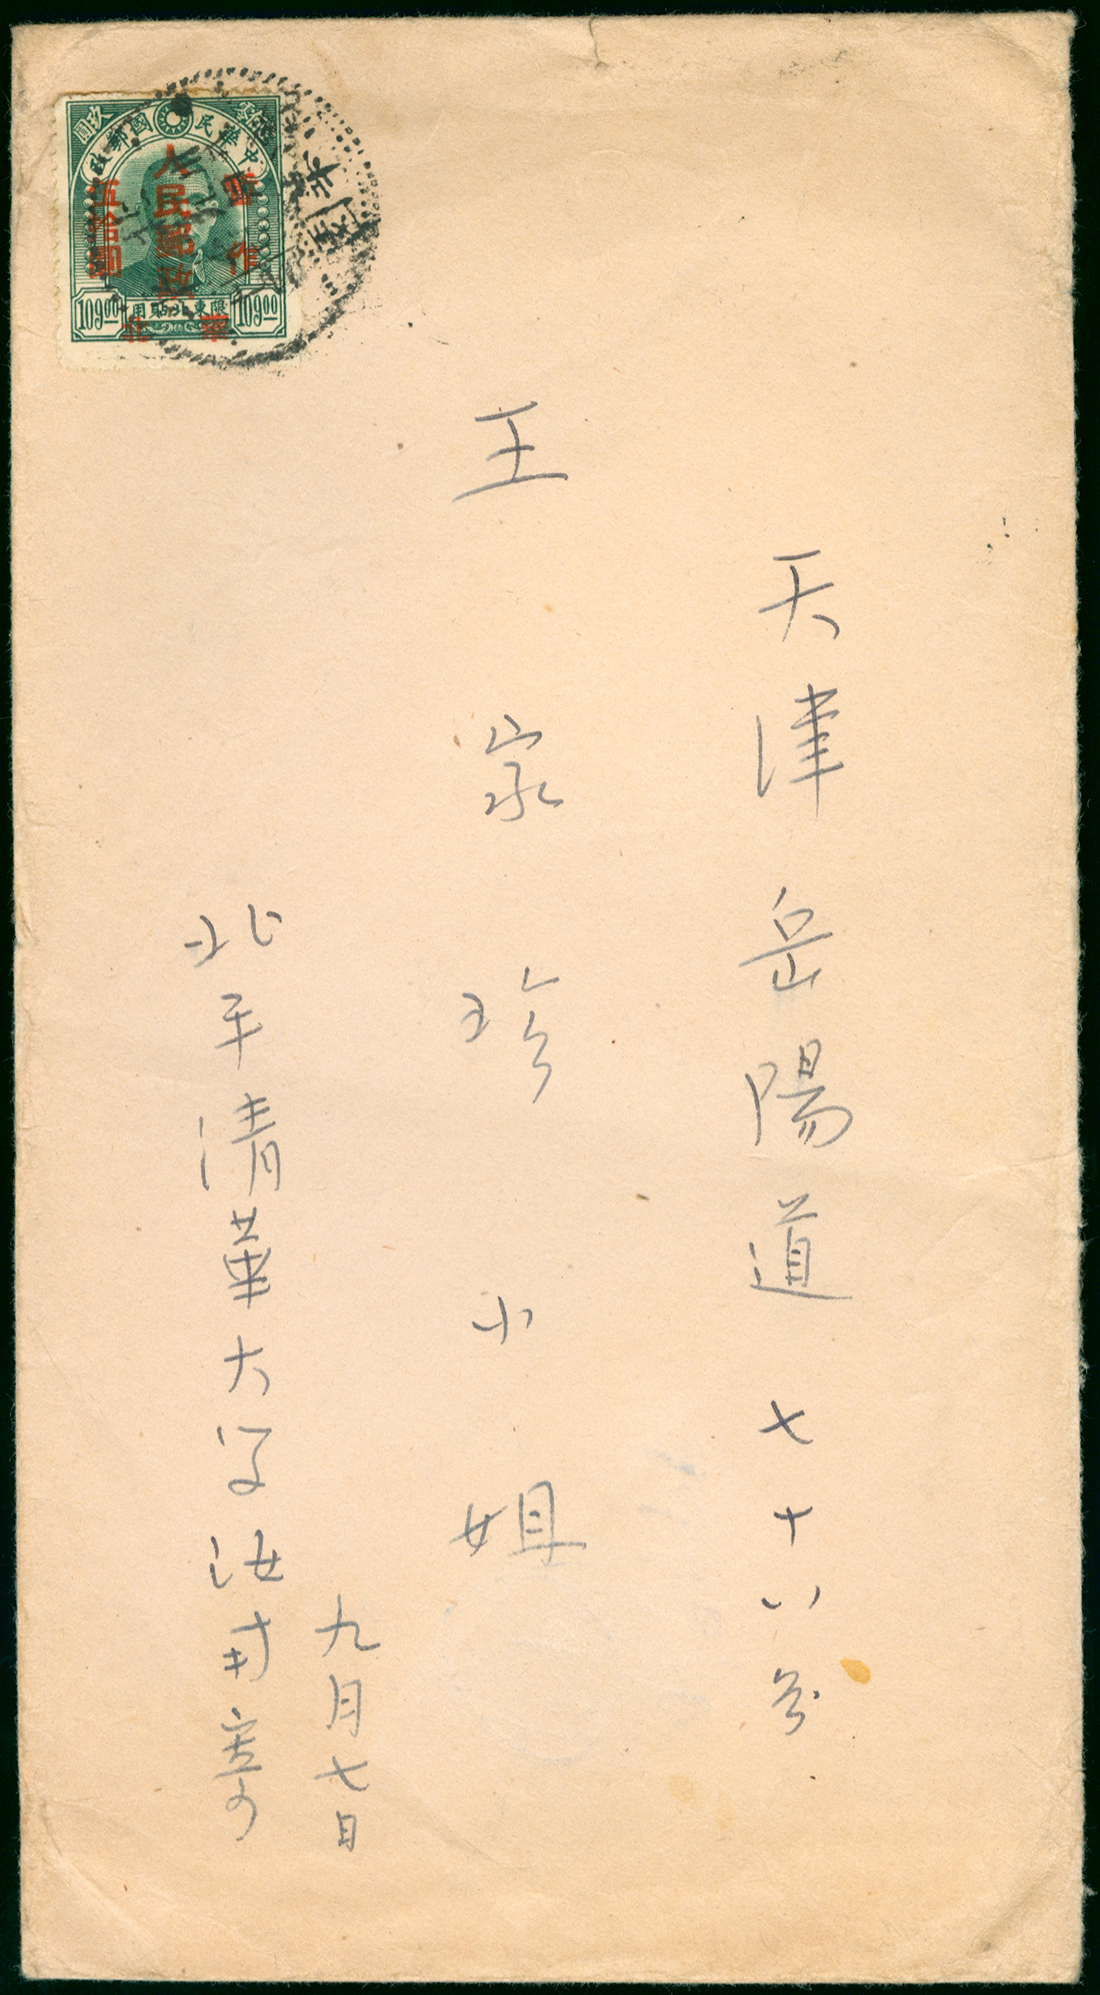 天津岳陽道七十八号
王家珍小姐
九月七日
北平清華大学
寄
中華民國郵政
人民郵政
暫作
伍拾圓
華北
限東北貼用
109.00
109.00